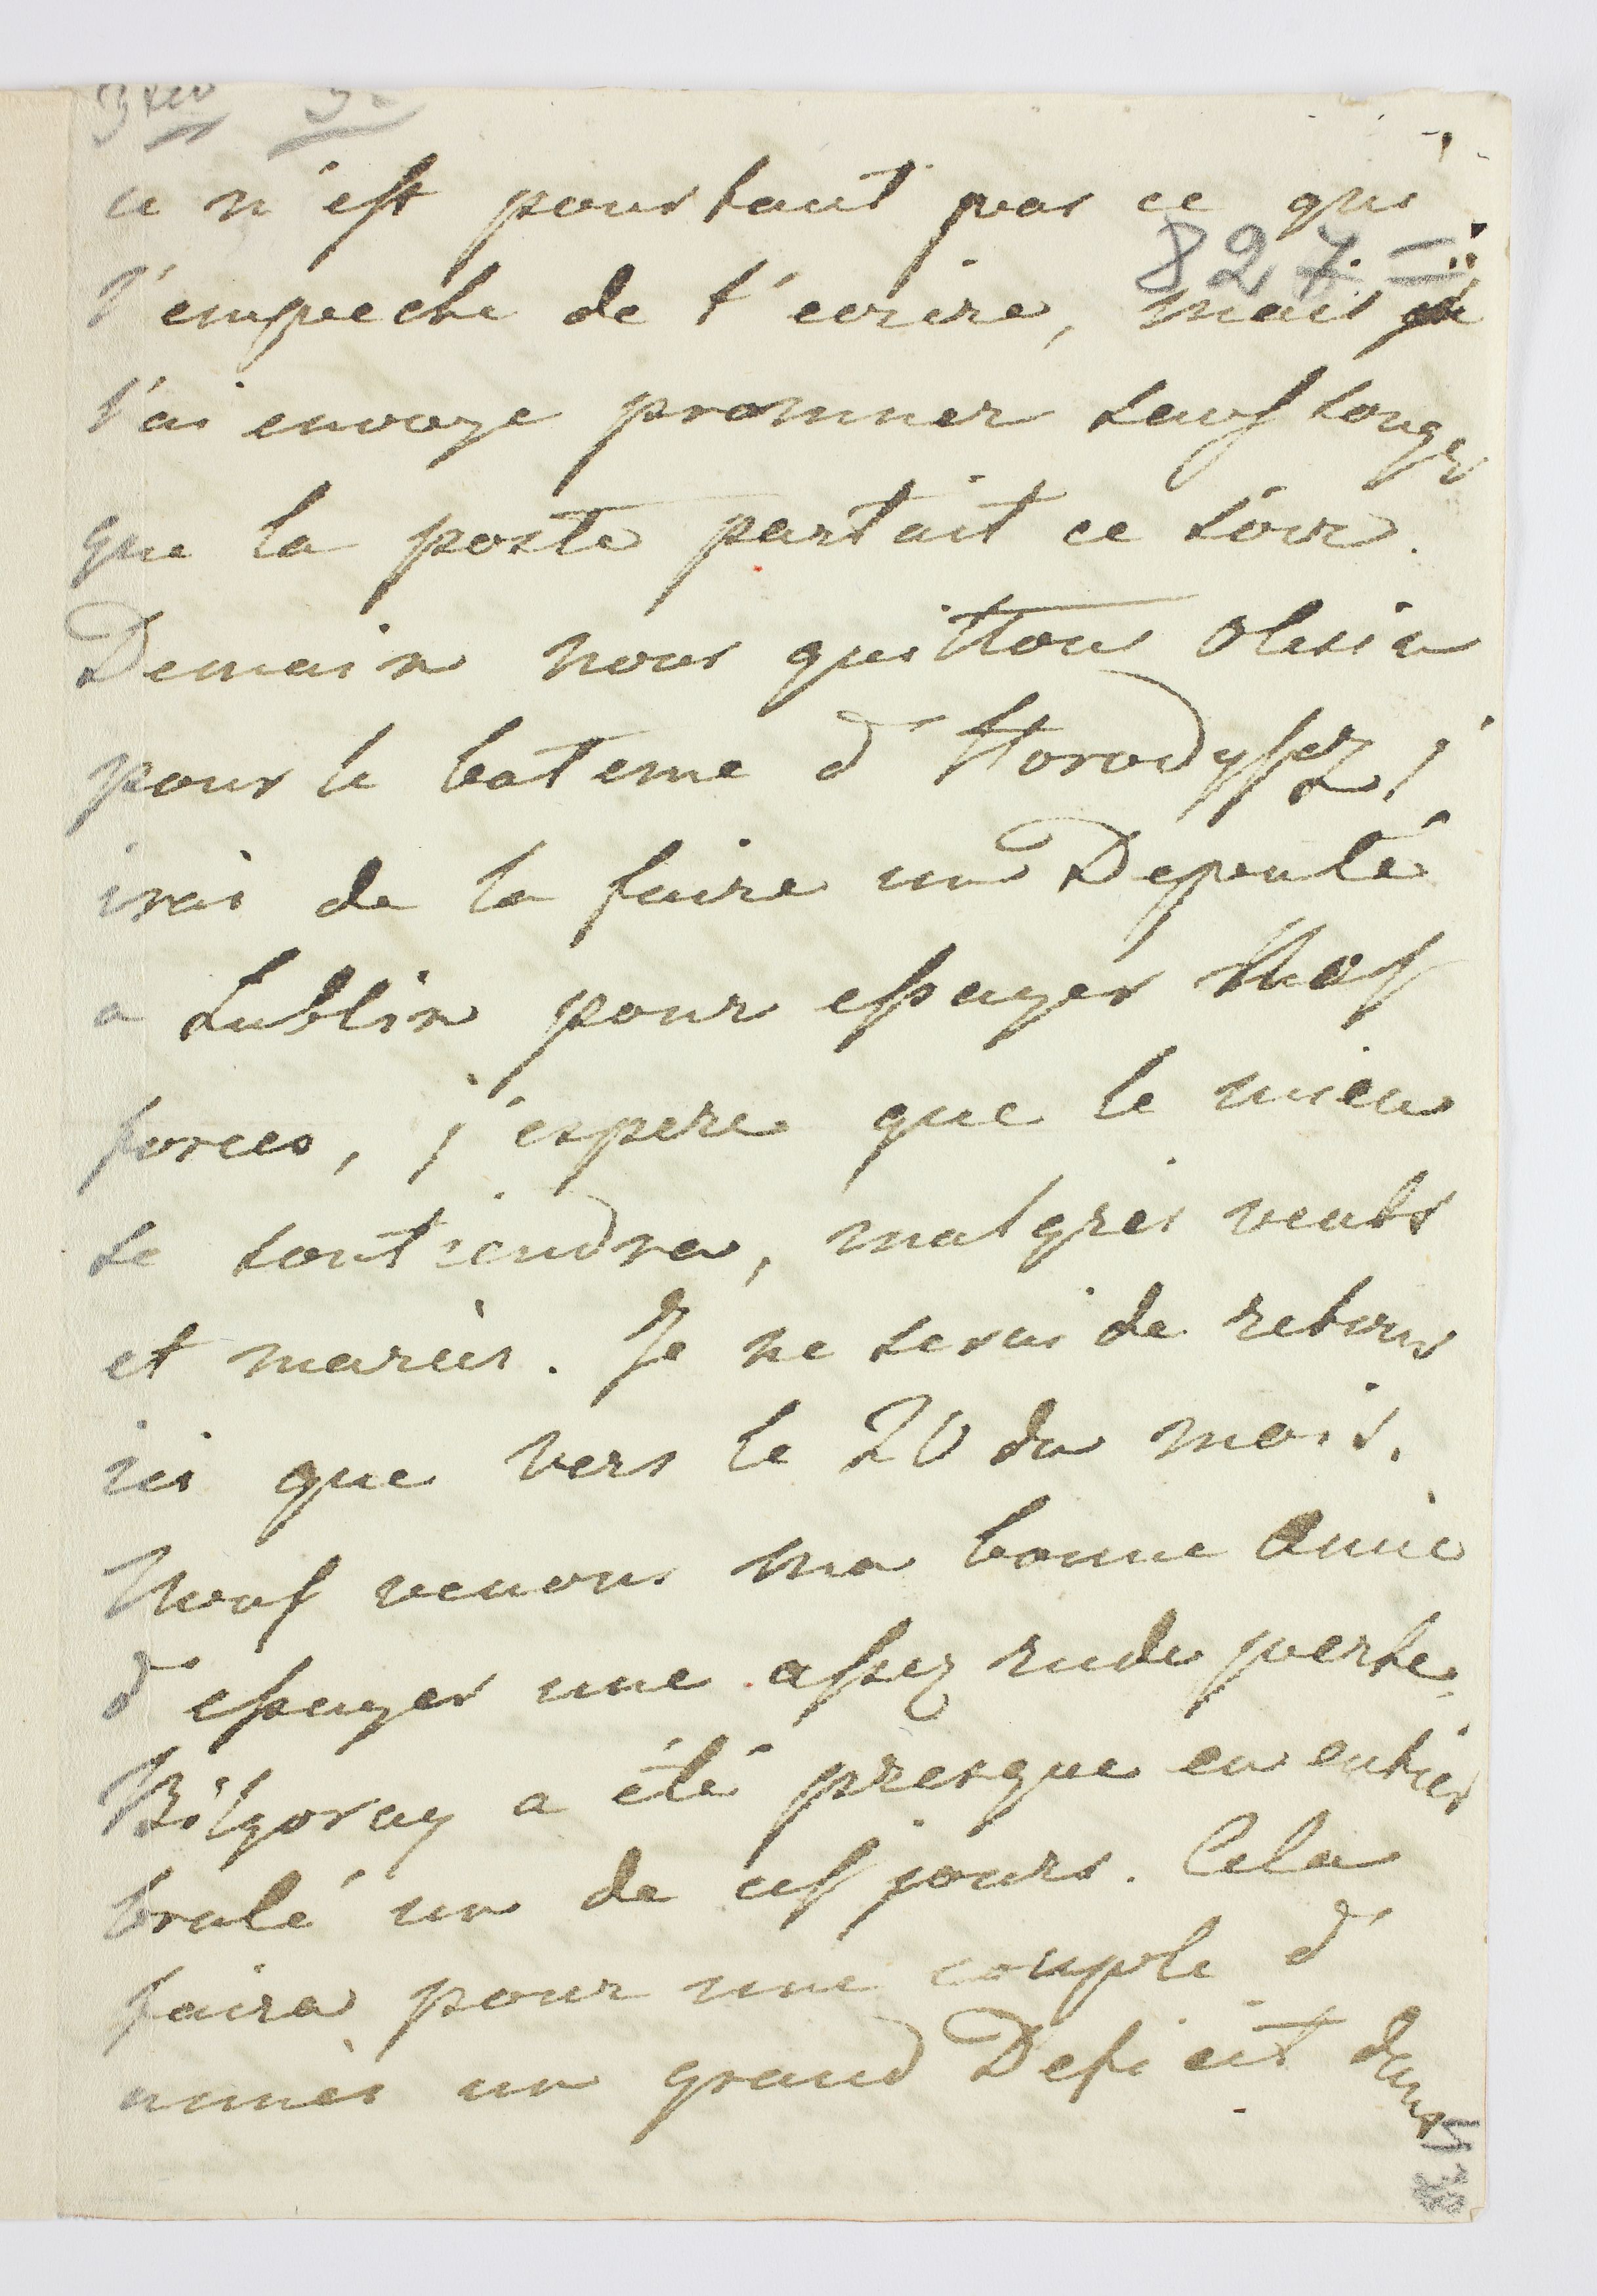 827
ce n'est pourtant pas ce qui
l'empeche de t'ecrire, mais je
l'ai envoye promner sauf songer
que la poste partait ce soir.
Demain nous quittons Olesin
pour le bateme d'Horodyszcz, j'
irai de la faire un Deputé
a Lublin pour essayer nos
forces, j'espere que le mien
se soutiendra, malgrés vents
et marées. Je ne serai de retour
ici que vers le 20 du mois.
Nous venons ma bonne Amie
d'essayer une assez rude perte,
Bilgoray a été presque en entier
brulé un de ces jours. Cela
faira pour une couple d'
années un grand Deficit dans